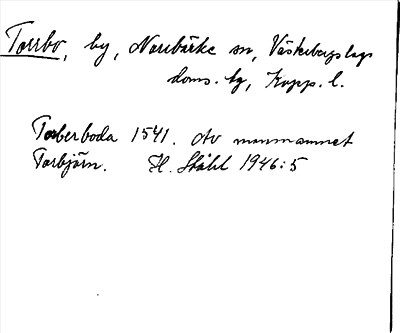 Torrbo, by, Norrbärke sn, Västerbergslags
doms. tg, Kopp. l.
Torberboda 1541. Av mansnamnet
Torbjörn. H. Ståhl 1946:5